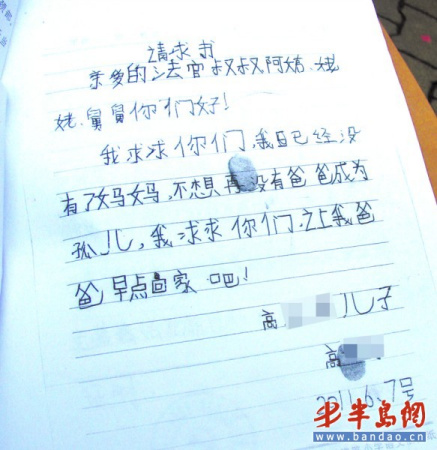 请求书
亲爱的法官叔叔阿姨.姥
姥.舅舅你们好！
我求求你们,我已经没
有了妈妈,不想再没有爸爸成为
孤儿,我求求你们.让我爸
爸早点回家吧!
高 儿子
高
2011.6.7号
半岛网
www.bandao.cn